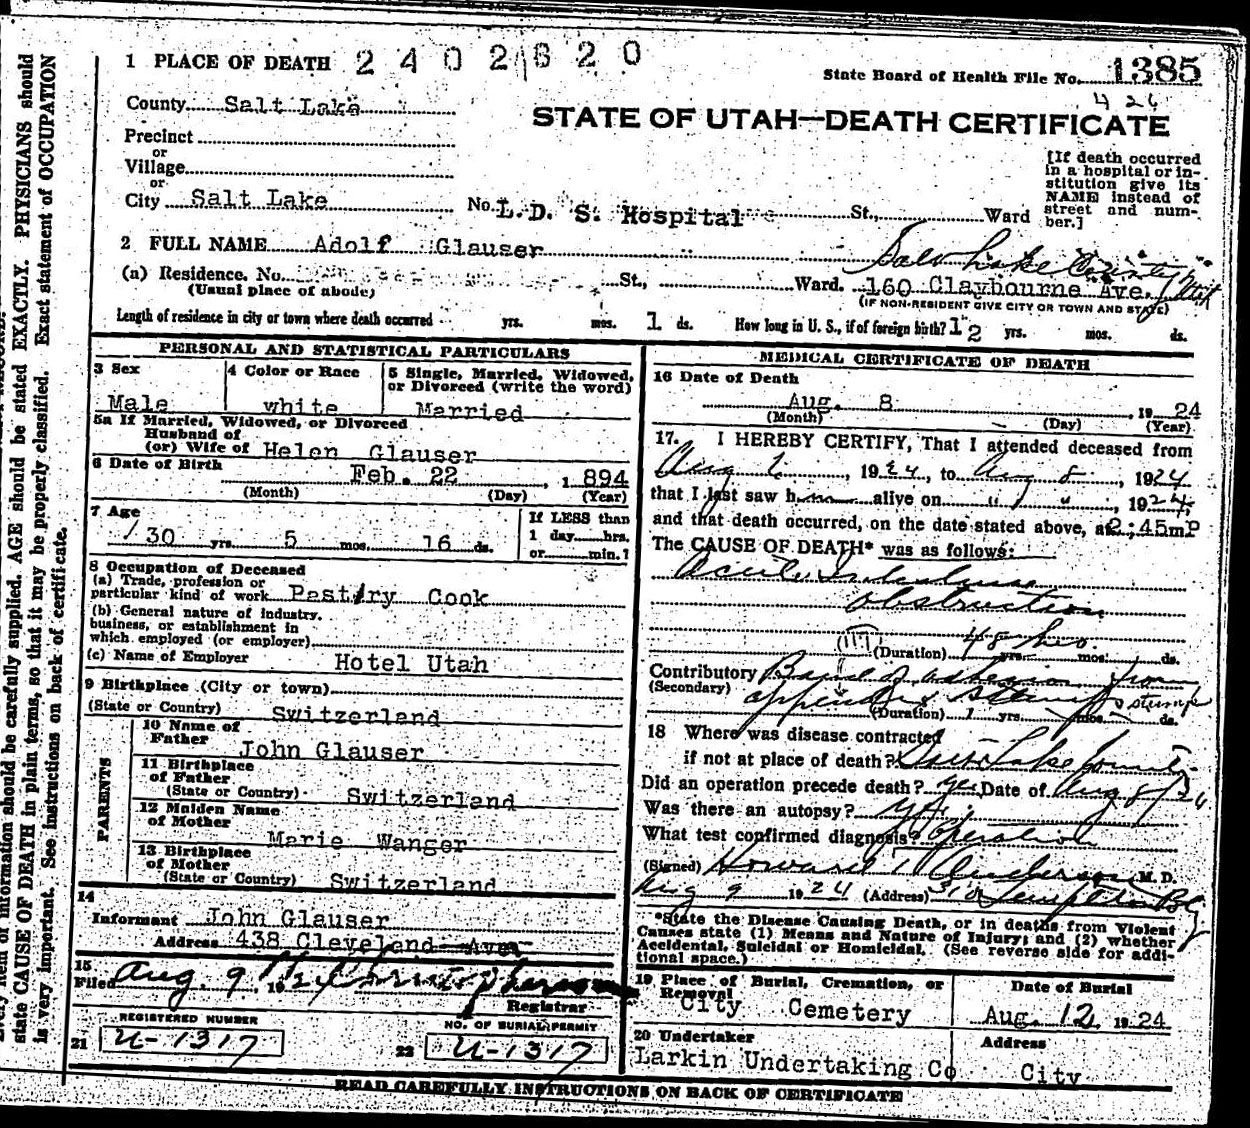 1 PLACE OF DEATH 2402620
State Board of Health File No. 1385
426
County Salt Lake
STATE OF UTAH—DEATH CERTIFICATE
Precinct
or
Village
or
City Salt Lake No. L. D. S. Hospital St., Ward
[If death occurred
in a hospital or in-
stitution give its
NAME instead of
street and num-
ber.]
2 FULL NAME Adolf Glauser
Salt Lake County Utah
(a) Residence. No. St., Ward. 160 Claybourne Ave.
(Usual place of abode)
(IF NON-RESIDENT GIVE CITY OR TOWN AND STATE)
Length of residence in city or town where death occurred yrs. mos. 1 ds. How long in U. S., if of foreign birth? 12 yrs. mos. ds.
PERSONAL AND STATISTICAL PARTICULARS
3 Sex
Male
4 Color or Race
white
5 Single, Married, Widowed,
or Divorced (write the word)
Married
5a If Married, Widowed, or Divorced
Husband of
(or) Wife of Helen Glauser
6 Date of Birth
Feb. 22, 1894
(Month) (Day) (Year)
7 Age
30 yrs. 5 mos. 16 ds.
If LESS than
1 day hrs.
or min.?
8 Occupation of Deceased
(a) Trade, profession or
particular kind of work Past/ry Cook
(b) General nature of industry,
business, or establishment in
which employed (or employer)
(c) Name of Employer Hotel Utah
9 Birthplace (City or town)
(State or Country) Switzerland
PARENTS
10 Name of
Father
John Glauser
11 Birthplace
of Father
(State or Country) Switzerland
12 Maiden Name
of Mother
Marie Wanger
13 Birthplace
of Mother
(State or Country) Switzerland
14
Informant John Glauser
Address 438 Cleveland Ave
15
Filed Aug. 9 1924
Registrar
REGISTERED NUMBER
21 U-1317
NO. OF BURIAL PERMIT
22 U-1317
MEDICAL CERTIFICATE OF DEATH
16 Date of Death
Aug. 8, 1924
(Month) (Day) (Year)
17. I HEREBY CERTIFY, That I attended deceased from
Aug, 1924, to Aug 8, 1924
that I last saw him alive on " ", 1924,
and that death occurred, on the date stated above, at 2:45m P
The CAUSE OF DEATH* was as follows:
Acute Intestinal
obstruction
(117)
(Duration) 48 hrs. yrs. mos. ds.
Contributory Band of adhesion from
(Secondary) appendix stump stump
(Duration) 1 yrs. mos. ds.
18 Where was disease contracted
if not at place of death? Salt Lake County
Did an operation precede death? yes Date of Aug 8/24
Was there an autopsy? yes
What test confirmed diagnosis? Operation
(Signed) Howard T Anderson M. D.
Aug 9 1924 (Address) 510 Templeton Bldg
*State the Disease Causing Death, or in deaths from Violent
Causes state (1) Means and Nature of Injury; and (2) whether
Accidental, Suicidal or Homicidal. (See reverse side for addi-
tional space.)
19 Place of Burial, Cremation, or
Removal
City Cemetery
Date of Burial
Aug. 12, 1924
20 Undertaker
Larkin Undertaking Co
Address
City
READ CAREFULLY INSTRUCTIONS ON BACK OF CERTIFICATE
information should be carefully supplied. AGE should be stated EXACTLY. PHYSICIANS should
state CAUSE OF DEATH in plain terms, so that it may be properly classified. Exact statement of OCCUPATION
is very important. See instructions on back of certificate.